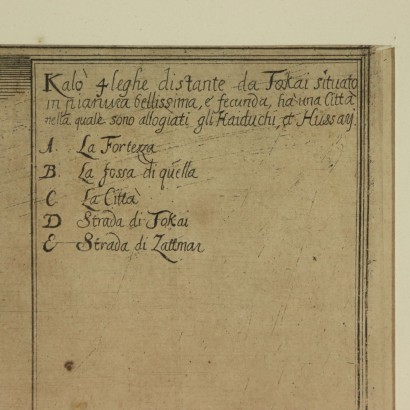 Kalò 4 leghe distante da Tokai situato
in pianuua bellissima, e fecunda, ha una Città
nella quale sono allogiati gli Haiduchi, et Hussari.
A La Fortezza
B La fossa di quella
C La Città
D Strada di Tokai
E Strada di Zattmar